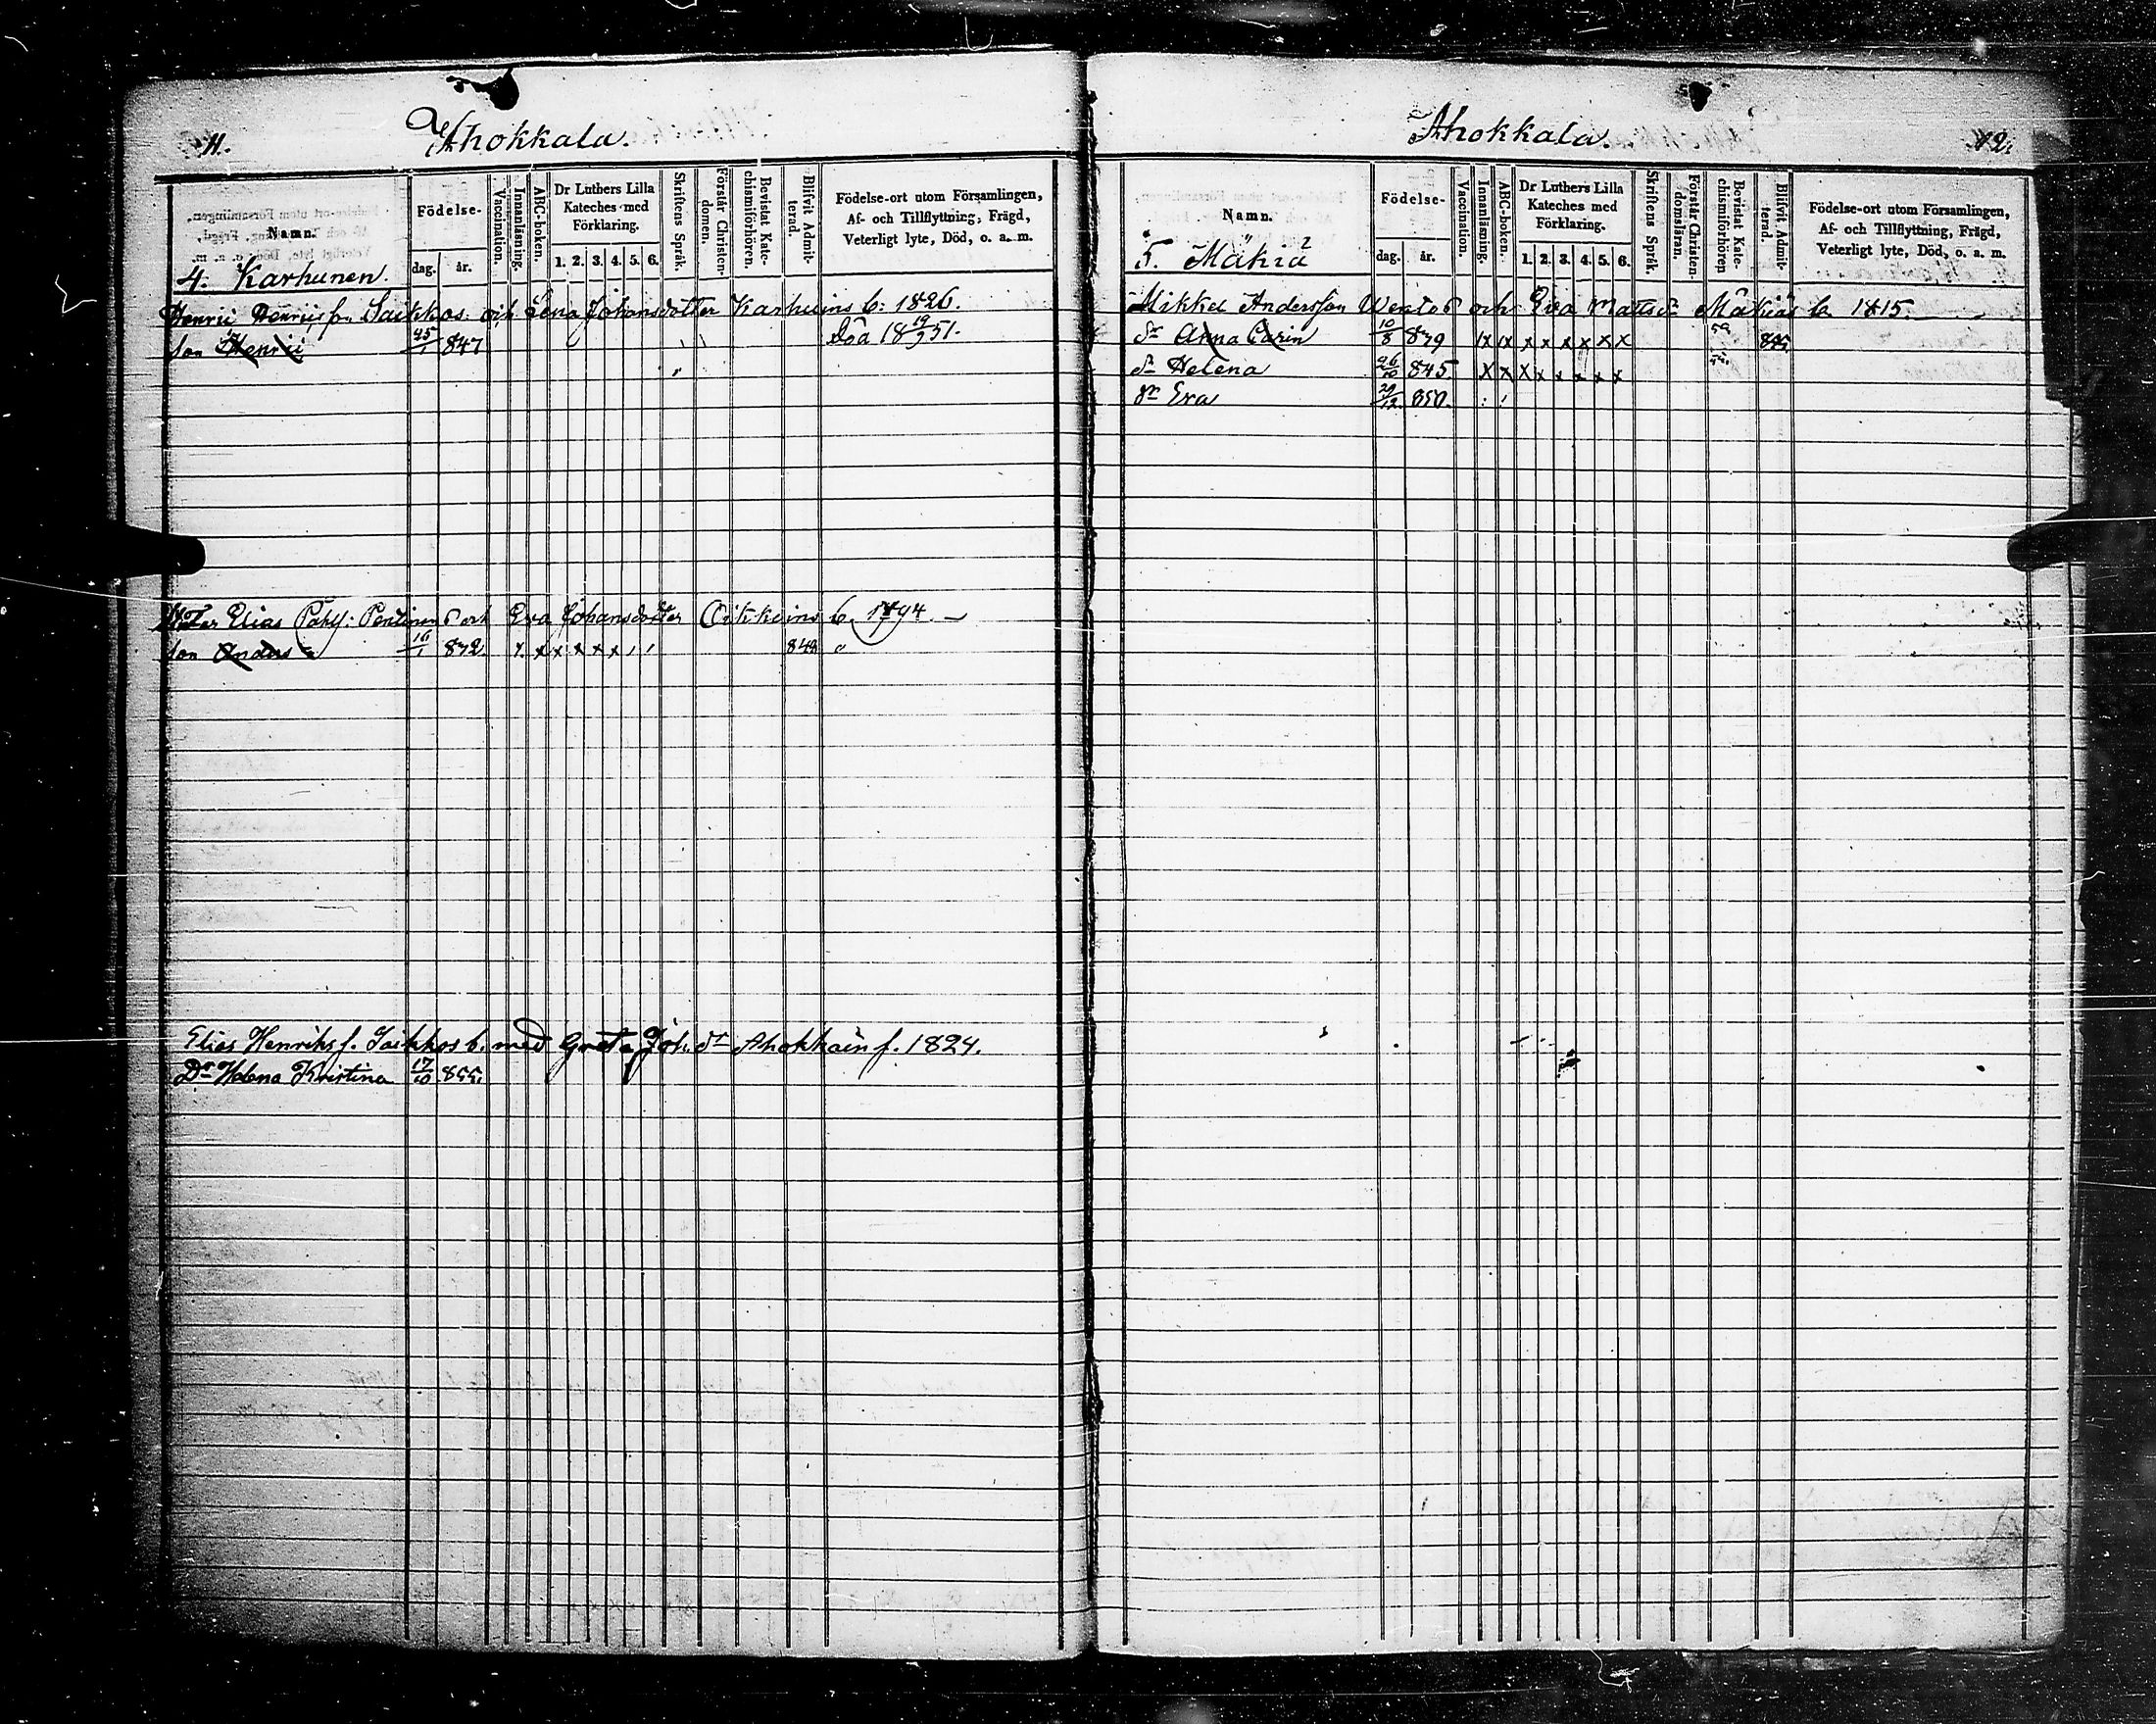 11.
Ahokkala.
Namn.
Födelse-
dag. år.
Vaccination.
Innanläsning.
ABC-boken.
Dr Luthers Lilla
Kateches med
Förklaring.
1. 2. 3. 4. 5. 6.
Skriftens Språk.
Förstår Christen-
domen.
Bevistat Kate-
chismiförhören.
Blifvit Admit-
terad.
Födelse-ort utom Församlingen,
Af- och Tillflyttning, Frägd,
Veterligt lyte, Död, o. a. m.
4. Karhunen
Henric och Lena Johansdotter b: 1826.
son Henric 25/1 847 Död 18 19/7 51.
Elias och Eva Johansdotter b. 1794
son Anders 16/1 832. x x x x x x 848
Elias Henriks s. b. med Greta Joh. dr Ahokkain f. 1824.
Dr Helena Kristina 17/10 855.
Ahokkala.
12.
Namn.
Födelse-
dag. år.
Vaccination.
Innanläsning.
ABC-boken.
Dr Luthers Lilla
Kateches med
Förklaring.
1. 2. 3. 4. 5. 6.
Skriftens Språk.
Förstår Christen-
domsläran.
Bevistat Kate-
chismiförhören
Blifvit Admit-
terad.
Födelse-ort utom Församlingen,
Af- och Tillflyttning, Frägd,
Veterligt lyte, Död, o. a. m.
5. Mäkiä
Mikkel Andersson och Eva Mattsdr Mäkiäs b. 1815.
dr Anna Carin 10/8 x x x x x x x x
dr Helena 26/10 845. x x x x x x x x
dr Eva 29/12 850.